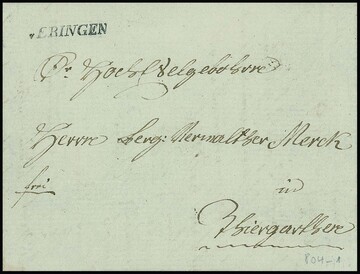 v.ERINGEN
Sr. Hochedelgebohrne
Herrn Berg: Verwalther Merck
frei
in
Thiergarthen
804-1